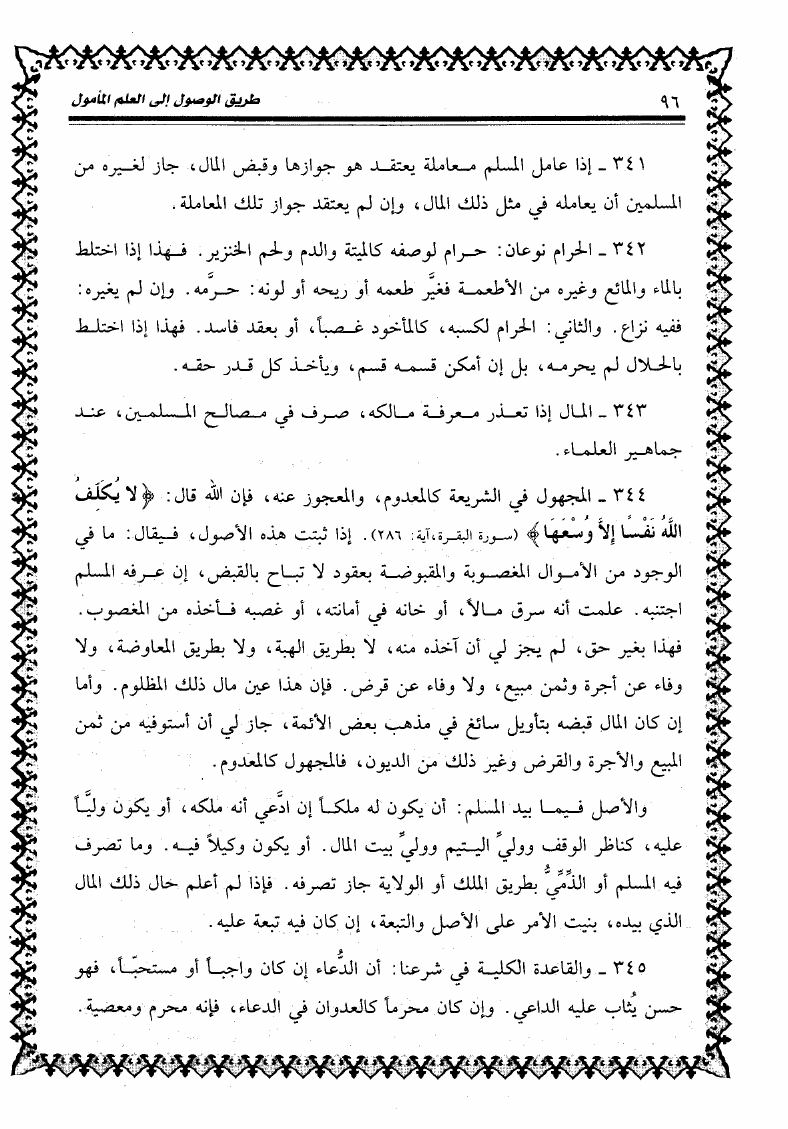 ٩٦
طريق الوصول إلى العلم المأمول
٣٤١ ـ إذا عامل المسلم معاملة يعتقد هو جوازها وقبض المال، جاز لغيره من
المسلمين أن يعامله في مثل ذلك المال، وإن لم يعتقد جواز تلك المعاملة.
٣٤٢ ـ الحرام نوعان: حرام لوصفه كالميتة والدم ولحم الخنزير. فهذا إذا اختلط
بالماء والمائع وغيره من الأطعمة فغيَّر طعمه أو ريحه أو لونه: حرَّمه. وإن لم يغيره:
ففيه نزاع. والثاني: الحرام لكسبه، كالمأخود غصباً، أو بعقد فاسد. فهذا إذا اختلط
بالحلال لم يحرمه، بل إن أمكن قسمه قسم، ويأخذ كل قدر حقه.
٣٤٣ ـ المال إذا تعذر معرفة مالكه، صرف في مصالح المسلمين، عند
جماهير العلماء.
٣٤٤ ـ المجهول في الشريعة كالمعدوم، والمعجوز عنه، فإن الله قال: ﴿لا يُكَلِّفُ
اللَّهُ نَفْسًا إِلاَّ وُسْعَهَا﴾ (سورة البقرة، آية: ٢٨٦). إذا ثبتت هذه الأصول، فيقال: ما في
الوجود من الأموال المغصوبة والمقبوضة بعقود لا تباح بالقبض، إن عرفه المسلم
اجتنبه. علمت أنه سرق مالاً، أو خانه في أمانته، أو غصبه فأخذه من المغصوب.
فهذا بغير حق، لم يجز لي أن آخذه منه، لا بطريق الهبة، ولا بطريق المعاوضة، ولا
وفاء عن أجرة وثمن مبيع، ولا وفاء عن قرض. فإن هذا عين مال ذلك المظلوم. وأما
إن كان المال قبضه بتأويل سائغ في مذهب بعض الأئمة، جاز لي أن أستوفيه من ثمن
المبيع والأجرة والقرض وغير ذلك من الديون، فالمجهول كالمعدوم.
والأصل فيما بيد المسلم: أن يكون له ملكاً إن ادَّعي أنه ملكه، أو يكون وليَّاً
عليه، كناظر الوقف ووليِّ اليتيم ووليِّ بيت المال. أو يكون وكيلاً فيه. وما تصرف
فيه المسلم أو الذِّمِّيُّ بطريق الملك أو الولاية جاز تصرفه. فإذا لم أعلم حال ذلك المال
الذي بيده، بنيت الأمر على الأصل والتبعة، إن كان فيه تبعة عليه.
٣٤٥ ـ والقاعدة الكلية في شرعنا: أن الدُّعاء إن كان واجباً أو مستحبّاً، فهو
حسن يُثاب عليه الداعي. وإن كان محرماً كالعدوان في الدعاء، فإنه محرم ومعصية.